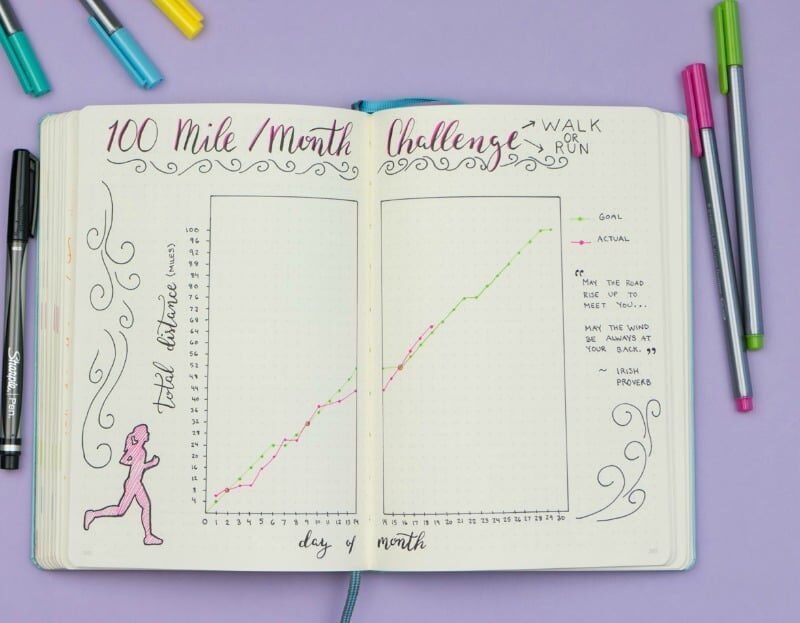 100 Mile/Month Challenge
WALK
OR
RUN
GOAL
ACTUAL
"MAY THE ROAD
RISE UP TO
MEET YOU...
MAY THE WIND
BE ALWAYS AT
YOUR BACK."
~ IRISH
PROVERB
total distance (MILES)
100
96
92
88
84
80
76
72
68
64
60
56
52
48
44
40
36
32
28
24
20
16
12
8
4
0 1 2 3 4 5 6 7 8 9 10 11 12 13 14
14 15 16 17 18 19 20 21 22 23 24 25 26 27 28 29 30
day of month
Sharpie Pen.